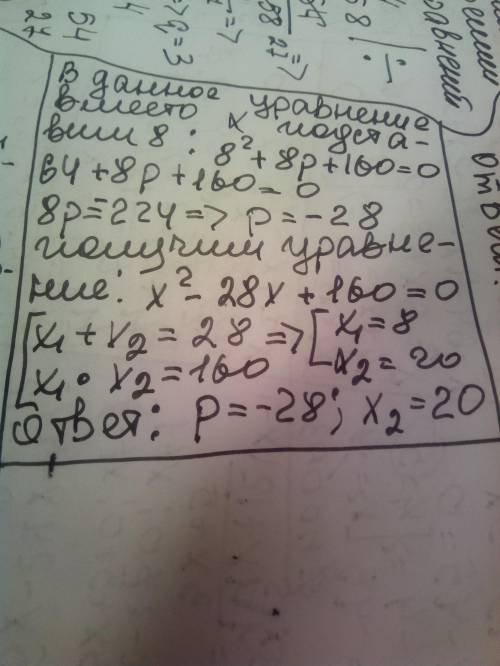 В данное уравнение
вместо x подста-
вим 8: 8² + 8p + 160 = 0
64 + 8p + 160 = 0
8p = -224 => p = -28
получим уравне-
ние: x² - 28x + 160 = 0
[x₁ + x₂ = 28 => [x₁ = 8
x₁ · x₂ = 160 x₂ = 20
Ответ: p = -28; x₂ = 20